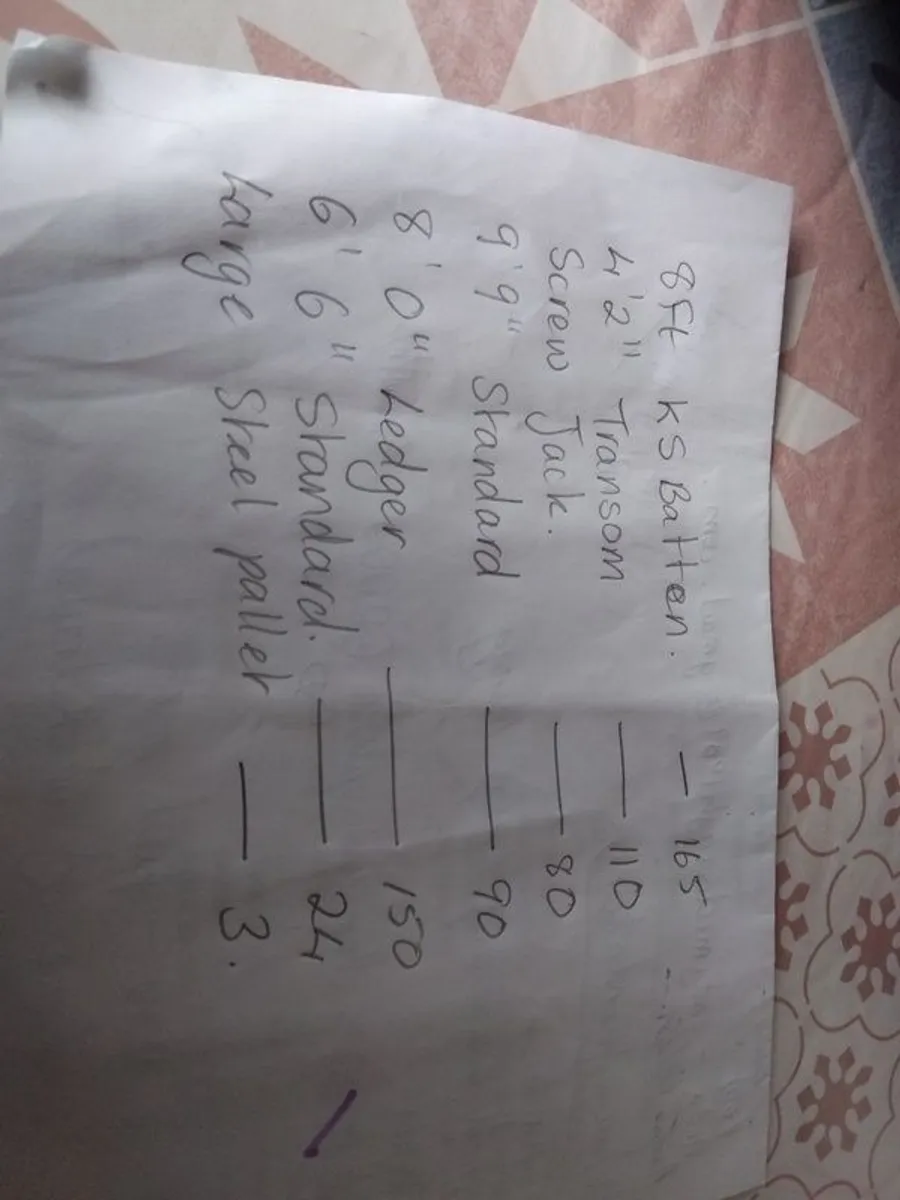 8ft KS Batten. — 165
4'2" Transom — 110
Screw Jack. — 80
9'9" Standard — 90
8'0" Ledger — 150
6'6" Standard. — 24
Large Steel pallet — 3.